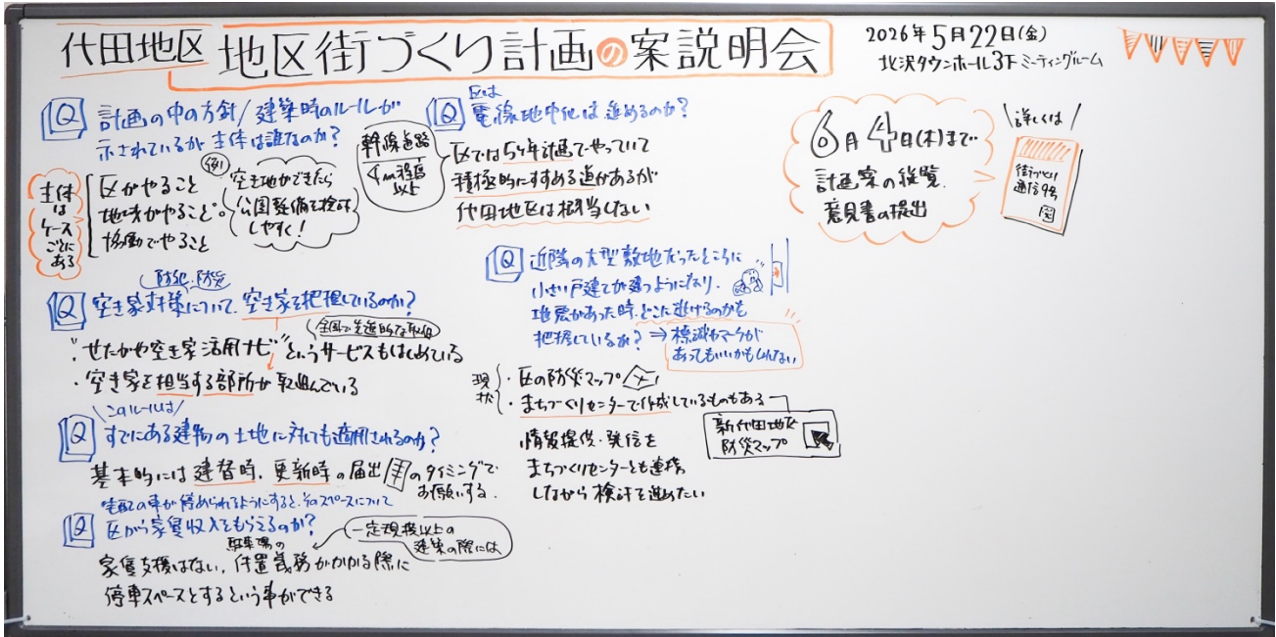 代田地区 地区街づくり計画の案説明会
2026年5月22日(金)
北沢タウンホール3F ミーティングルーム
Q 計画の中の方針/建築時のルールが
示されているが主体は誰なのか?
主体
は
ケース
ごとに
ある
区がやること
地元がやること
協働でやること
例
空き地ができたら
公園整備を検討
しやすく!
防犯・防災
Q 空き家対策について、空き家を把握しているのか?
全国で先進的な取組
"せたがや空き家活用ナビ"というサービスもはじめている
・空き家を担当する部所が取組んでいる
このルールは
Q すでにある建物の土地に対しても適用されるのか?
基本的には建替時、更新時の届出のタイミングで
お願いする.
宅配の車が停められるようにすると、そのスペースについて
Q 区から家賃収入をもらえるのか?
一定規模以上の
建築の際には
駐車場の
家賃支援はない、付置義務がかかる際に
停車スペースとするという事ができる
区は
Q 電線地中化は進めるのか?
幹線道路
4m程度
以上
区では5ヶ年計画でやっていて
積極的にすすめる道があるが
代田地区は該当しない
Q 近隣の大型敷地だったところに
小さい戸建てが建つようになり、
地震があった時、どこに逃げるのかも
把握しているか? ⇒ 標識やマークが
あってもいいかもしれない
現状
・区の防災マップ
・まちづくりセンターで作成しているものもある
新代田地区
防災マップ
情報提供・発信を
まちづくりセンターとも連携
しながら検討を進めたい
6月4日(木)まで
計画案の縦覧、
意見書の提出
\詳しくは/
街づくり
通信9号